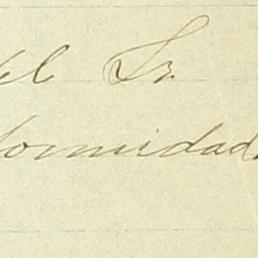 el Sr.
formidad